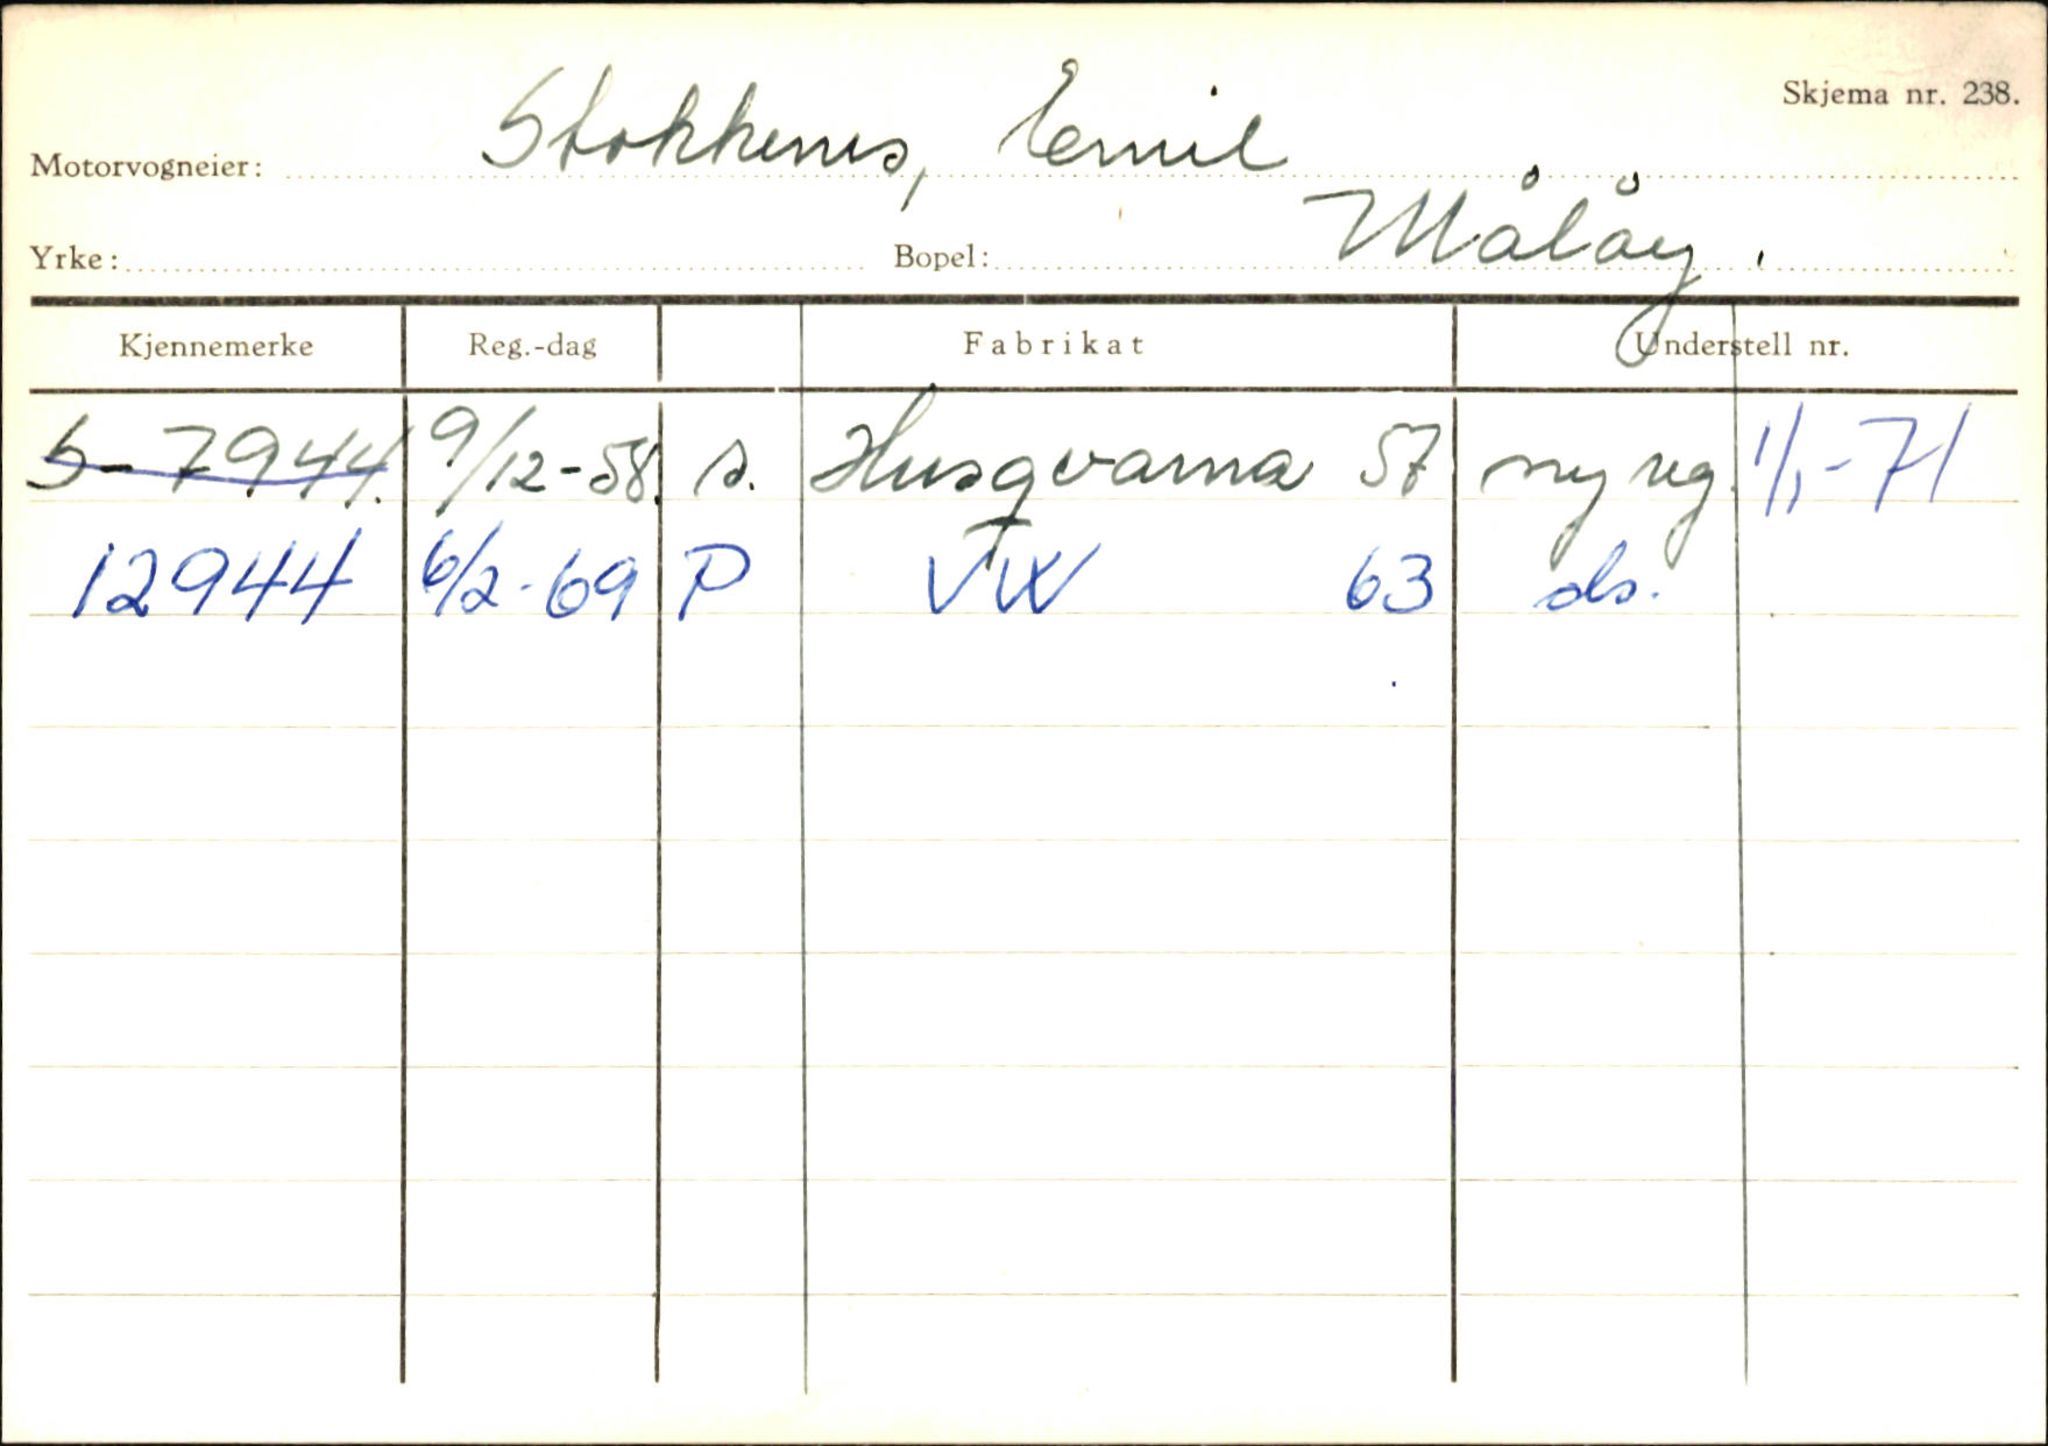 Skjema nr. 238.
Motorvogneier: Stokkenes, Emil
Yrke: Bopel: Måløy.
Kjennemerke Reg.-dag Fabrikat Understell nr.
S-7944. 9/12-58. s. Husqvarna 57 ny reg. 1/1-71
12944 6/2-69 P VW 63 ds.